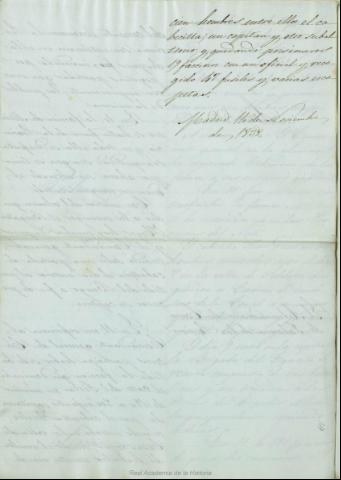 cien hombres entre ellos el ca-
becilla, un capitan y otro subal-
terno y quedando prisioneros
19 facciosos con un oficial y reco-
gido 49 fusiles y varias esco-
petas.
Madrid de Noviembre
de 1838.
Real Academia de la Historia